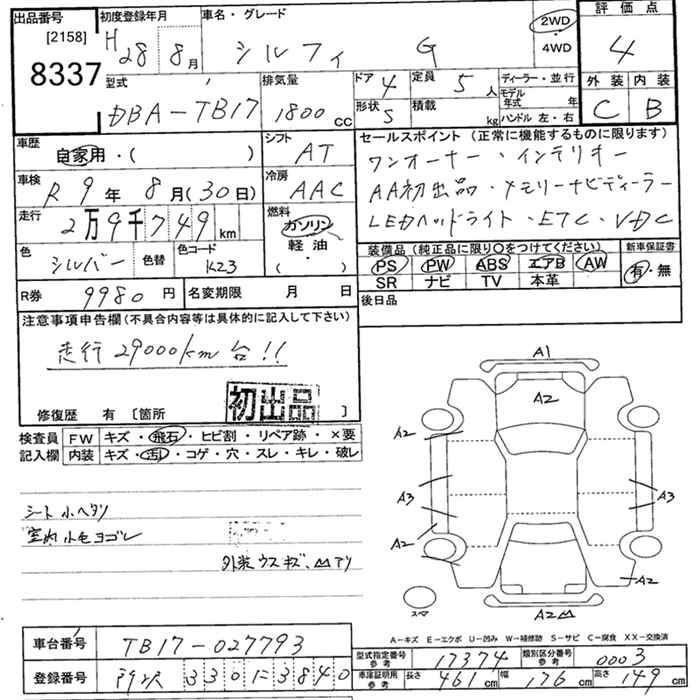 出品番号
[2158]
8337
初度登録年月
H 28 8月
車名・グレード
シルフィ G
2WD
4WD
評価点
4
外装 内装
C B
型式
DBA-TB17
排気量
1800 cc
ドア 4
定員 5人
形状 5
積載 kg
ディーラー・並行
モデル年式 年
ハンドル 左・右
車歴
自家用・( )
シフト
AT
車検
R 9年 8月(30日)
冷房
AAC
走行
2万9千749km
燃料
ガソリン
軽油
( )
色
シルバー
色替
色コード
K23
R券 9980円
名変期限 月 日
セールスポイント(正常に機能するものに限ります)
ワンオーナー・インテリキー
AA初出品・メモリーナビディーラー
LEDヘッドライト・ETC・VDC
装備品(純正品に限り○をつけてください)
PS PW ABS エアB AW
SR ナビ TV 本革
新車保証書
有・無
後日品
注意事項申告欄(不具合内容等は具体的に記入して下さい)
走行29000km台!!
初出品
修復歴 有〔箇所 〕
検査員記入欄
FW キズ・飛石・ヒビ割・リペア跡・×要
内装 キズ・汚レ・コゲ・穴・スレ・キレ・破レ
シート小ヘタリ
室内小キヨゴレ
外装ウスキズ、凹アリ
A1
A2
A2
A3
A3
A2
A2
スマ
A2凹
A-キズ E-エクボ U-凹み W-補修跡 S-サビ C-腐食 XX-交換済
車台番号 TB17-027793
登録番号 所沢 330 に 3840
型式指定番号参考 17374
類別区分番号参考 0003
車庫証明用参考 長さ 461cm 幅 176cm 高さ 149cm